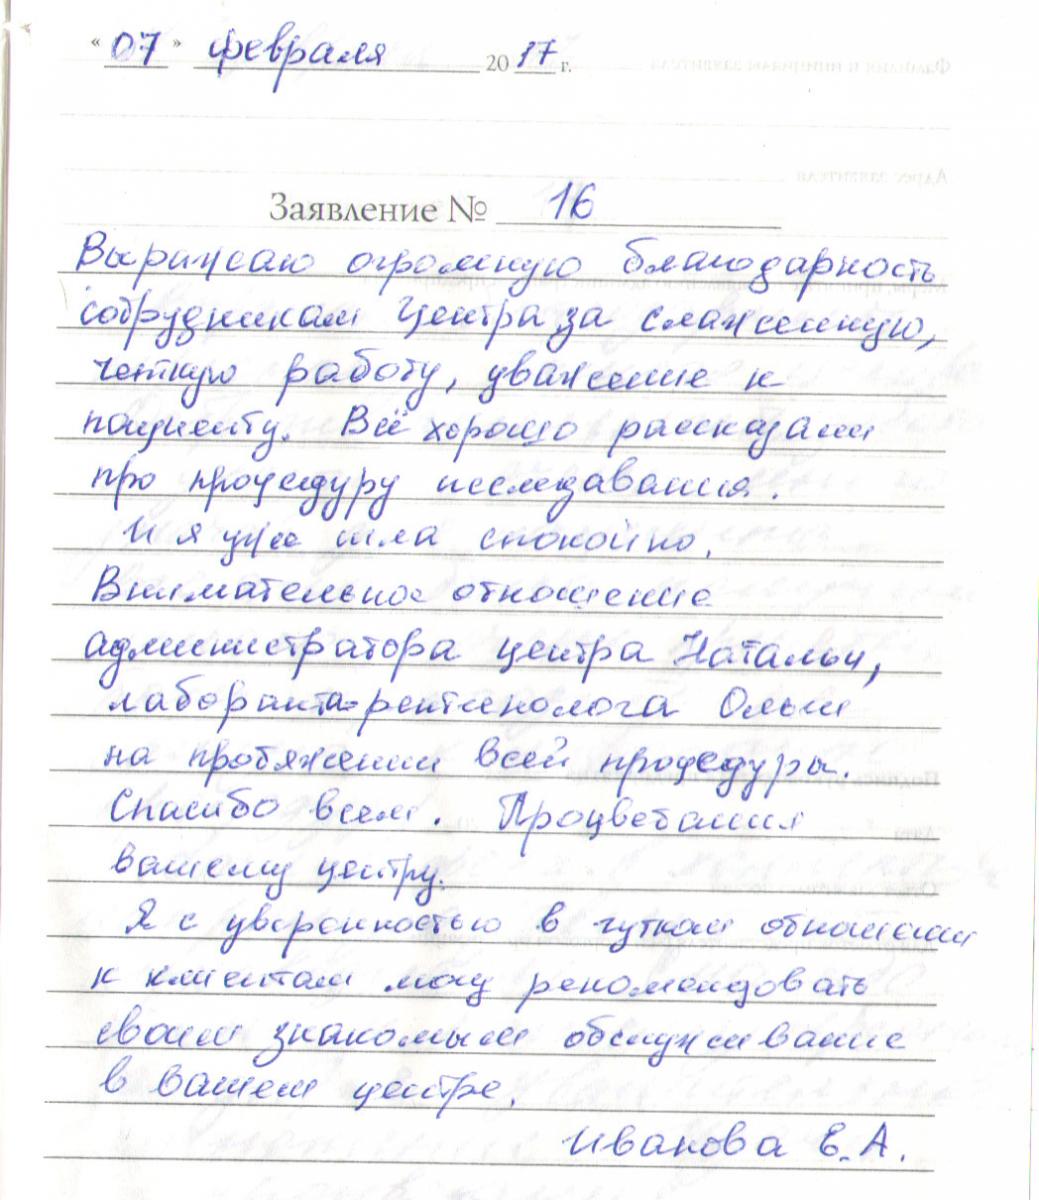 "07" февраля 2017 г.
Заявление № 16
Выражаю огромную благодарность
сотрудникам Центра за слаженную,
четкую работу, уважение к
пациенту. Всё хорошо рассказали
про процедуру исследования.
И я уже шла спокойно.
Внимательное отношение
администратора центра Натальи,
лаборанта-рентгенолога Ольги
на протяжении всей процедуры.
Спасибо всем. Процветания
вашему центру.
Я с уверенностью в чутком отношении
к клиентам могу рекомендовать
своим знакомым обслуживание
в вашем центре.
Иванова Е.А.